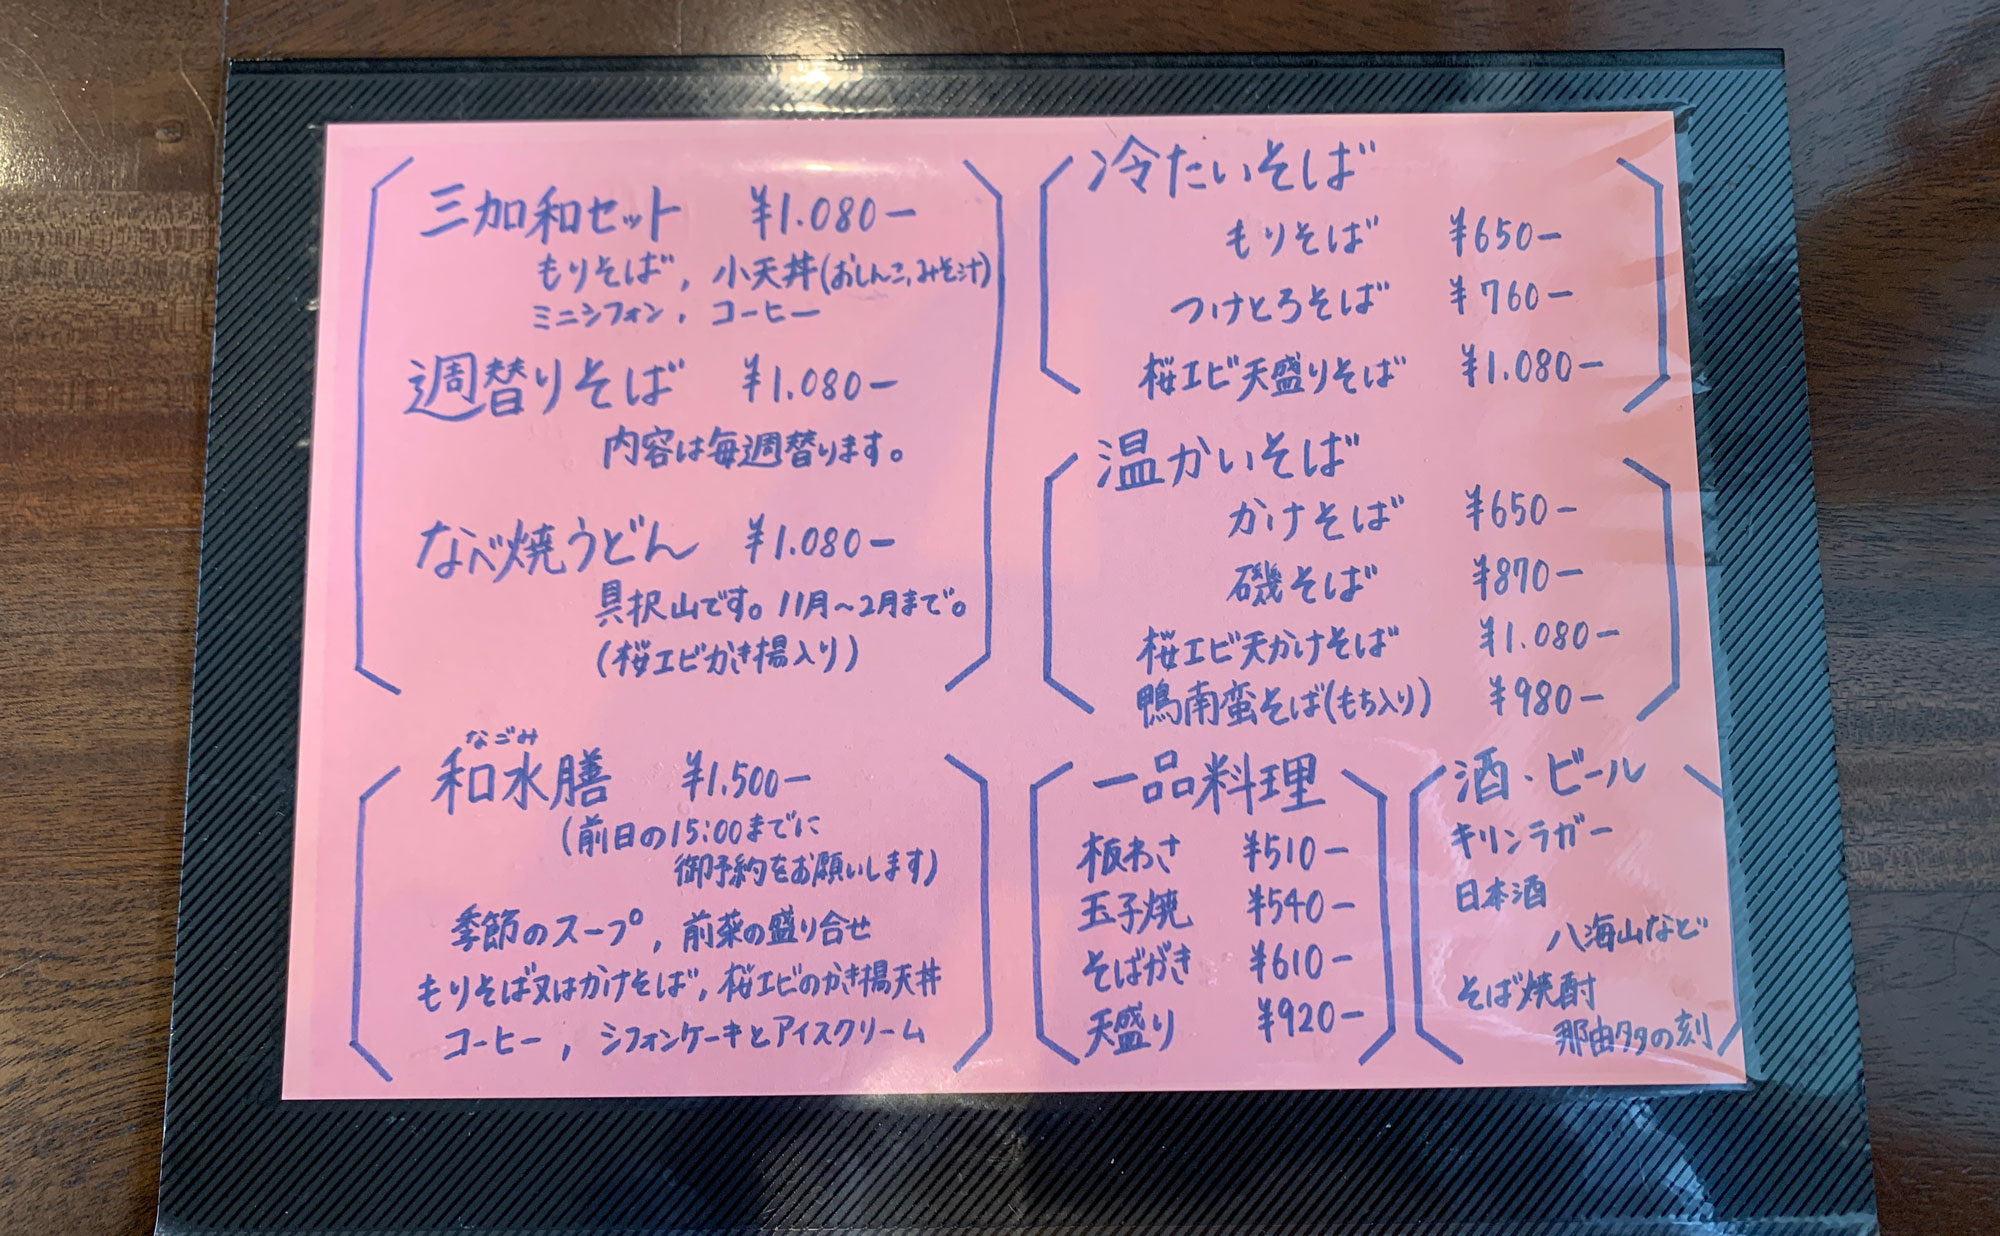 三加和セット ¥1.080−
もりそば, 小天丼(おしんこ,みそ汁)
ミニシフォン, コーヒー
週替りそば ¥1.080−
内容は毎週替ります。
なべ焼うどん ¥1.080−
具沢山です。11月〜2月まで。
(桜エビかき揚入り)
なごみ
和水膳 ¥1,500−
(前日の15:00までに
御予約をお願いします)
季節のスープ, 前菜の盛り合せ
もりそば又はかけそば, 桜エビのかき揚天丼
コーヒー, シフォンケーキとアイスクリーム
冷たいそば
もりそば ¥650−
つけとろそば ¥760−
桜エビ天盛りそば ¥1.080−
温かいそば
かけそば ¥650−
磯そば ¥870−
桜エビ天かけそば ¥1.080−
鴨南蛮そば(もち入り) ¥980−
一品料理
板わさ ¥510−
玉子焼 ¥540−
そばがき ¥610−
天盛り ¥920−
酒・ビール
キリンラガー
日本酒
八海山など
そば焼酎
那由多の刻